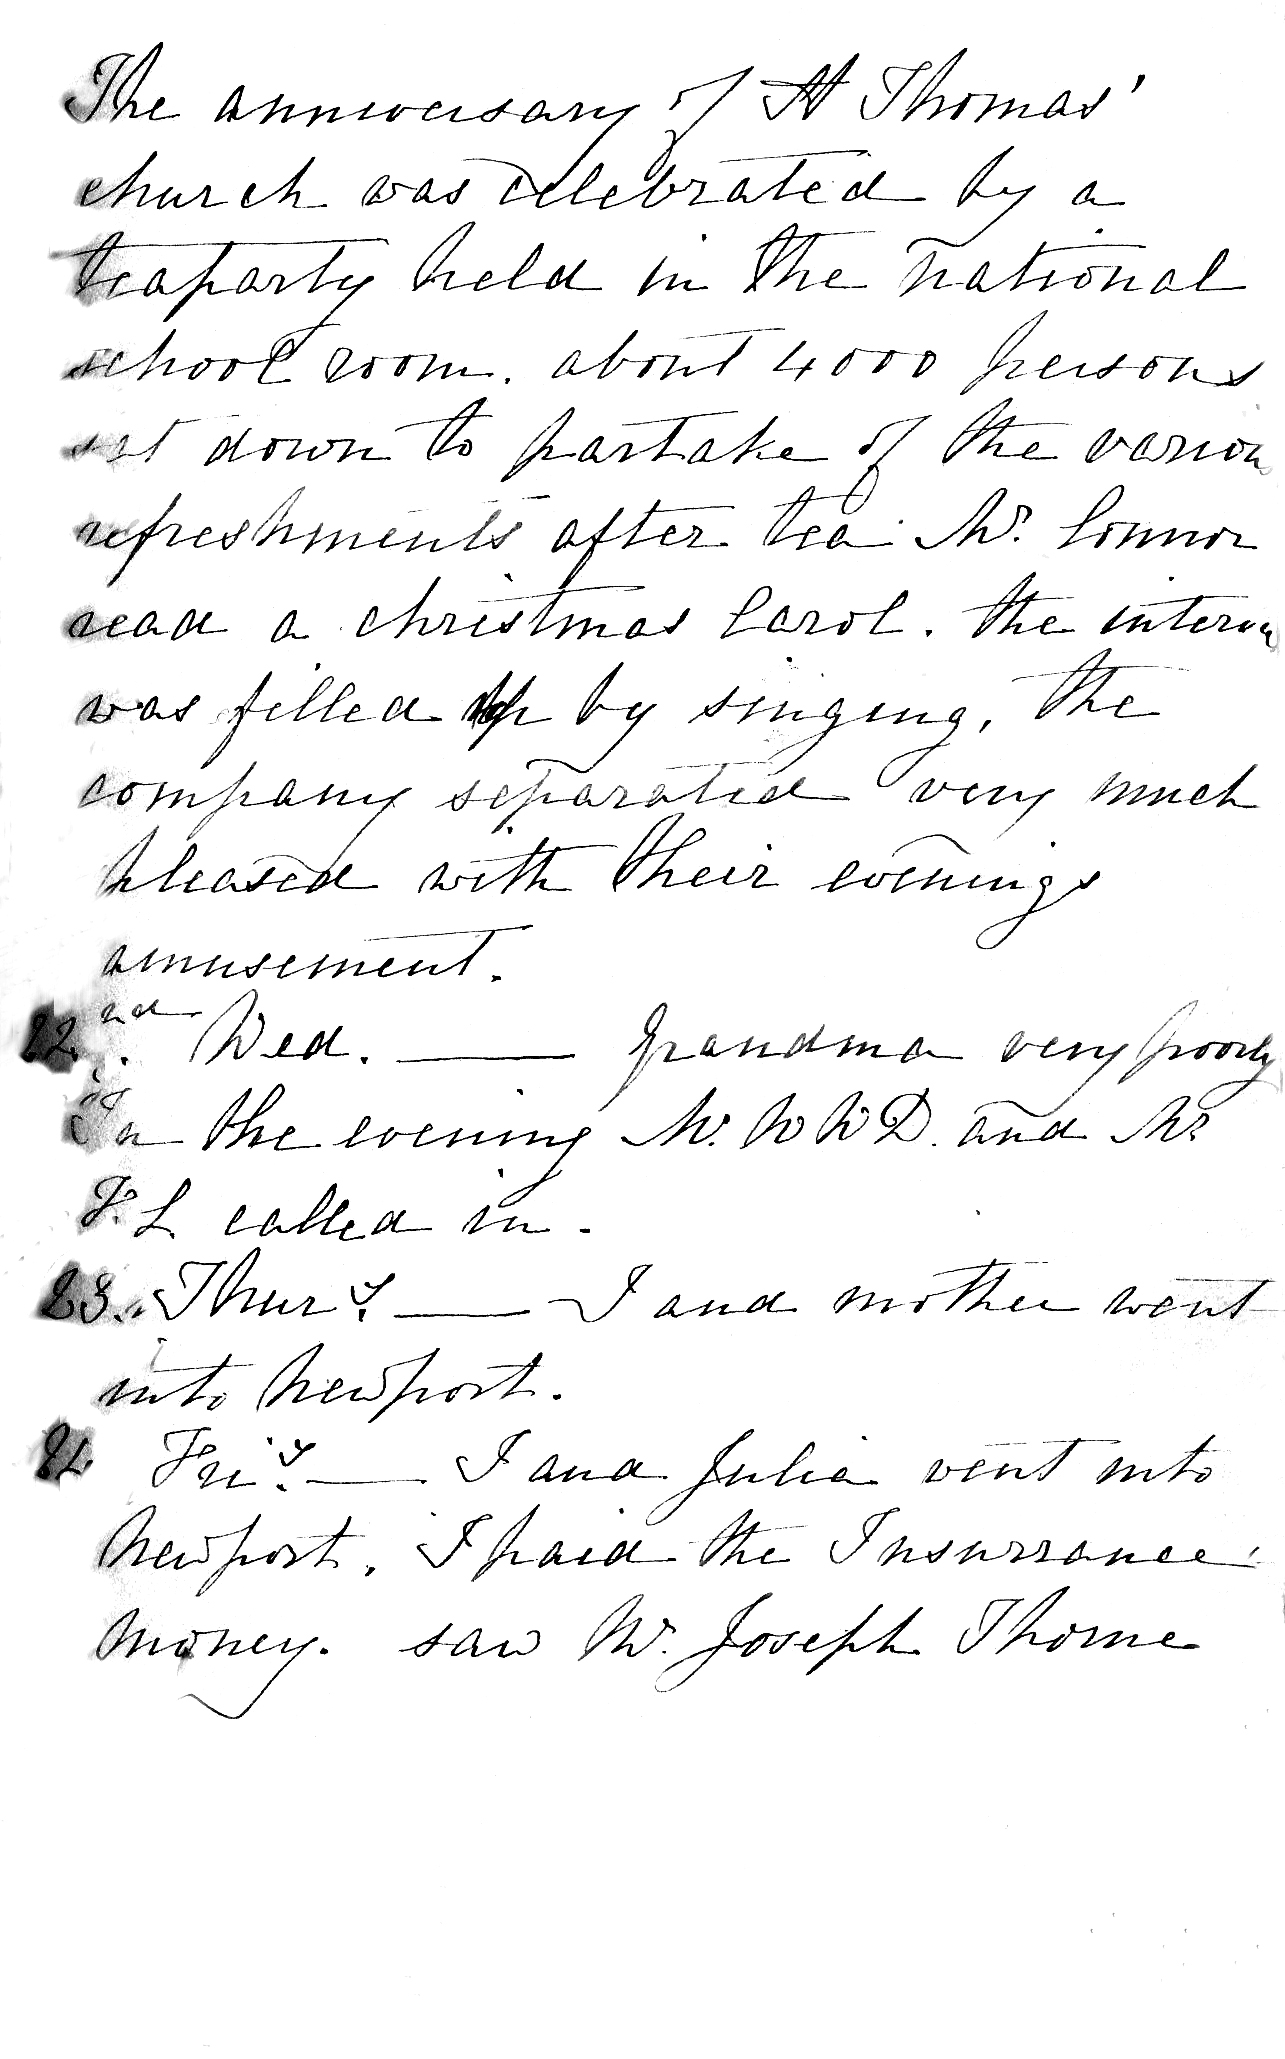 The anniversary of St Thomas'
church was celebrated by a
teaparty held in the national
school room. about 4000 persons
sat down to partake of the variou
refreshments after tea Mr. Connor
read a christmas Carol. the interva
was filled up by singing, the
company separated very much
pleased with their evenings
amusement.
22nd. Wed. — Grandma very poorly
In the evening Mr. W W D. and Mr
F. L called in.
23. Thury. — I and mother went
into Newport.
24 Friy. — I and Julia went into
Newport. I paid the Insurrance
money. saw Mr. Joseph Thorne